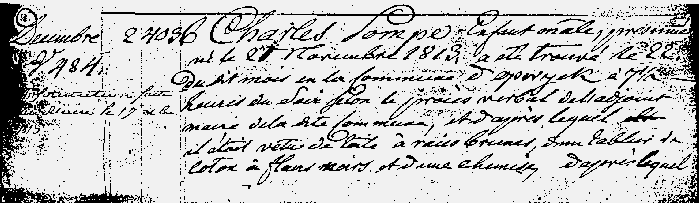 Decembre 24036 Charles Pompe Enfant mâle, présumé
né le 21 Novembre 1813, a été trouvé le 22
N° 484. Du dit mois en la Commune d' à 7½
heures du Soir selon le procès verbal de l'adjoint
le 17 maire de la dite Commune, et d'après lequel
il était vêtu de toile à raies brunes, d'un tablier de
coton à fleurs noires et d'une chemise, d'après lequel